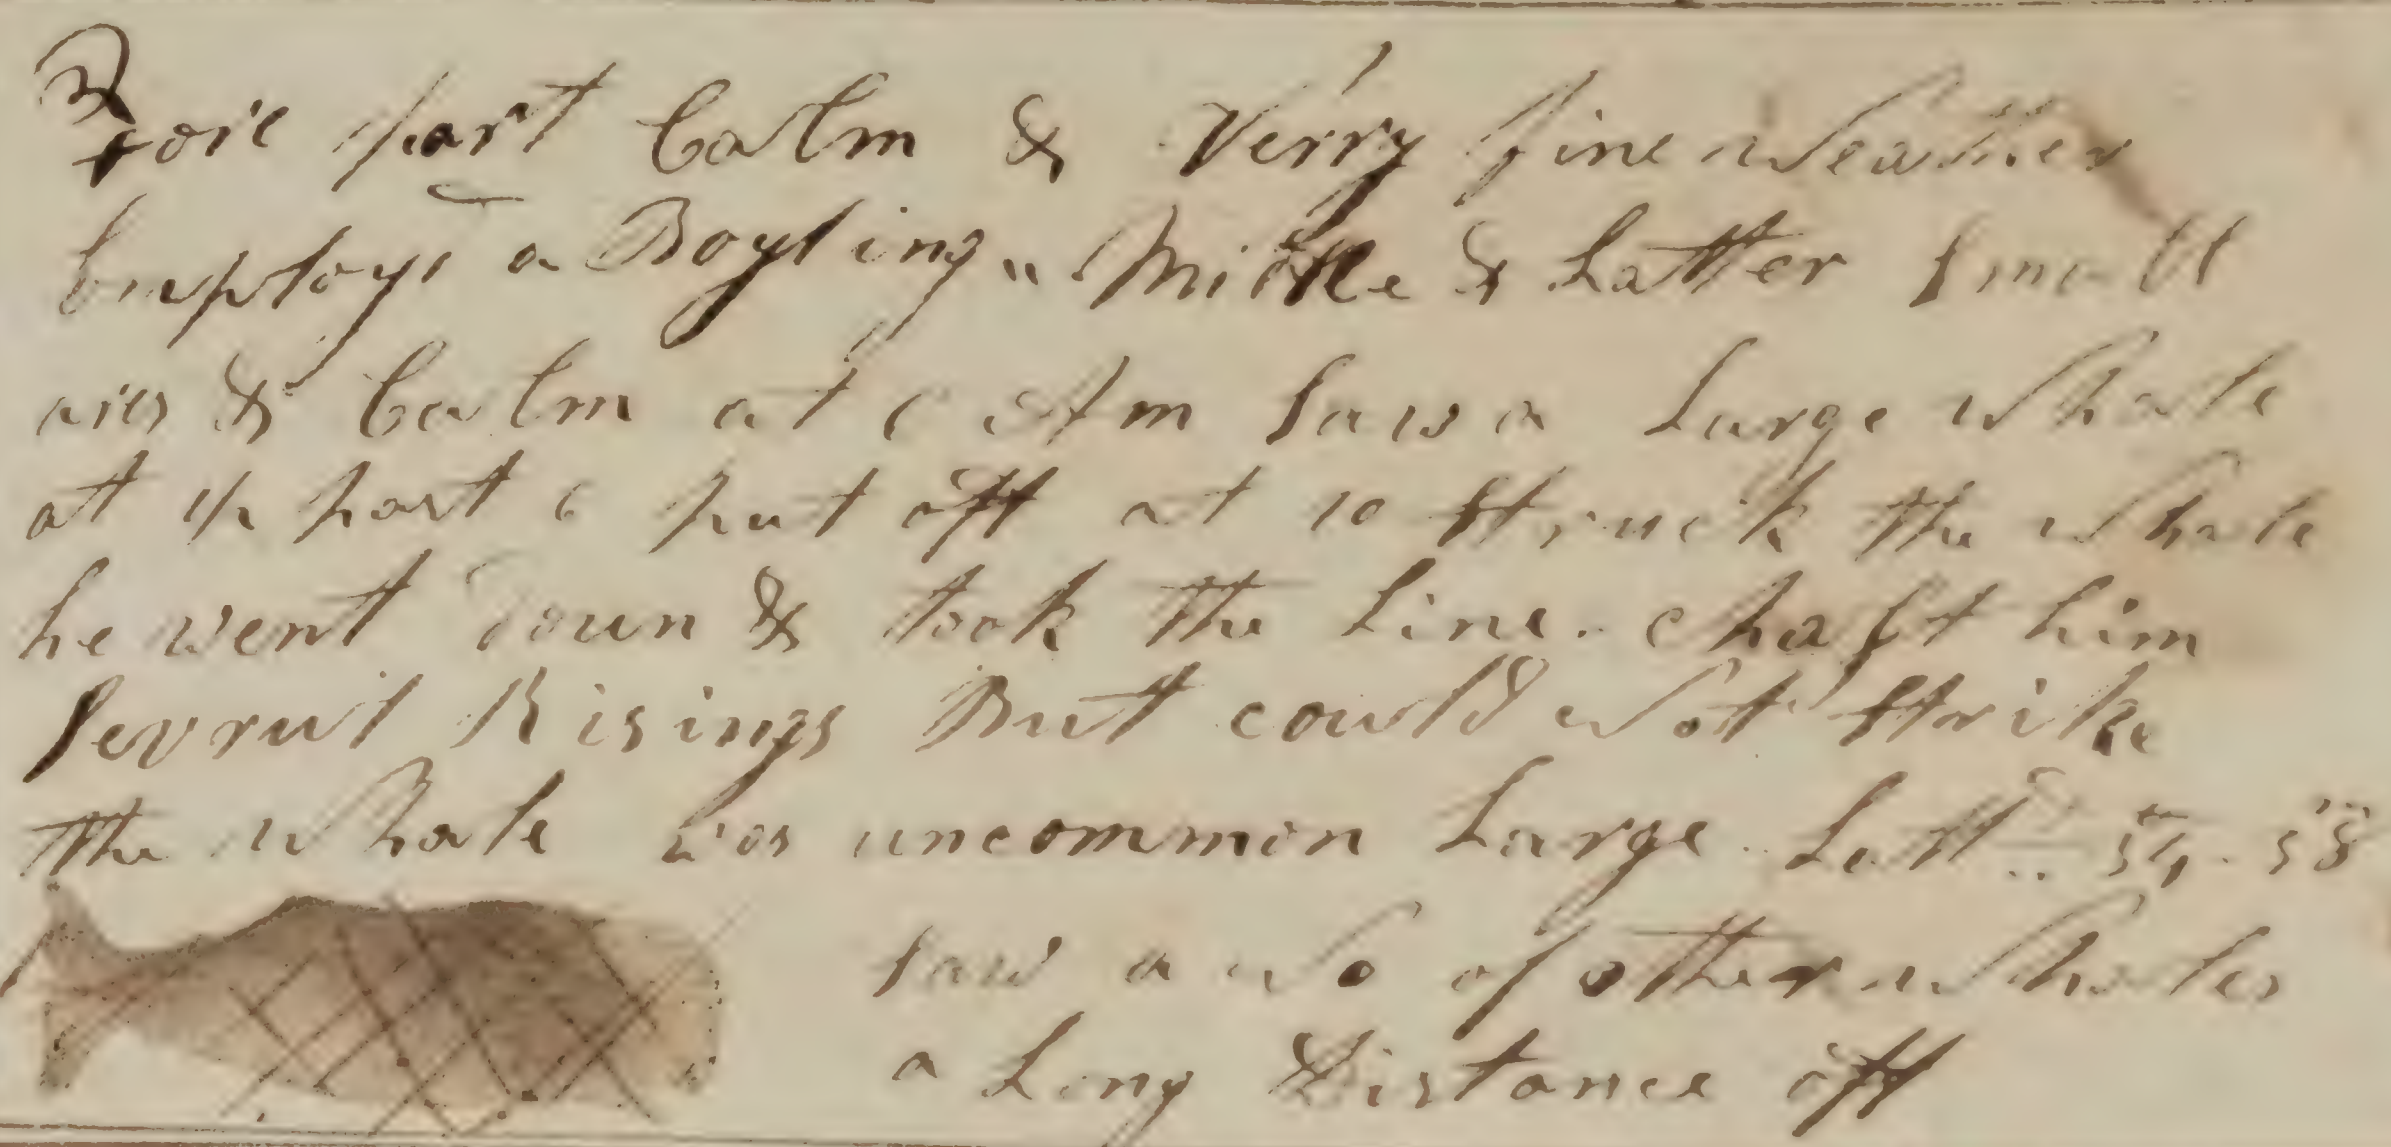 Fore part Calm & Verry fine Weather
Employd a Boyling " Midle & Latter Small
aires & Calm at 6 AM Saw a Large Whale
att 1/2 past 6 put off at 10 Struck the Whale
he went Down & took the Line. Chasst him
Sevrul Risings But could Not Strike
the Whale was uncommon Large Latt 34.58
Saw a No of other Whales
a Long Distance off